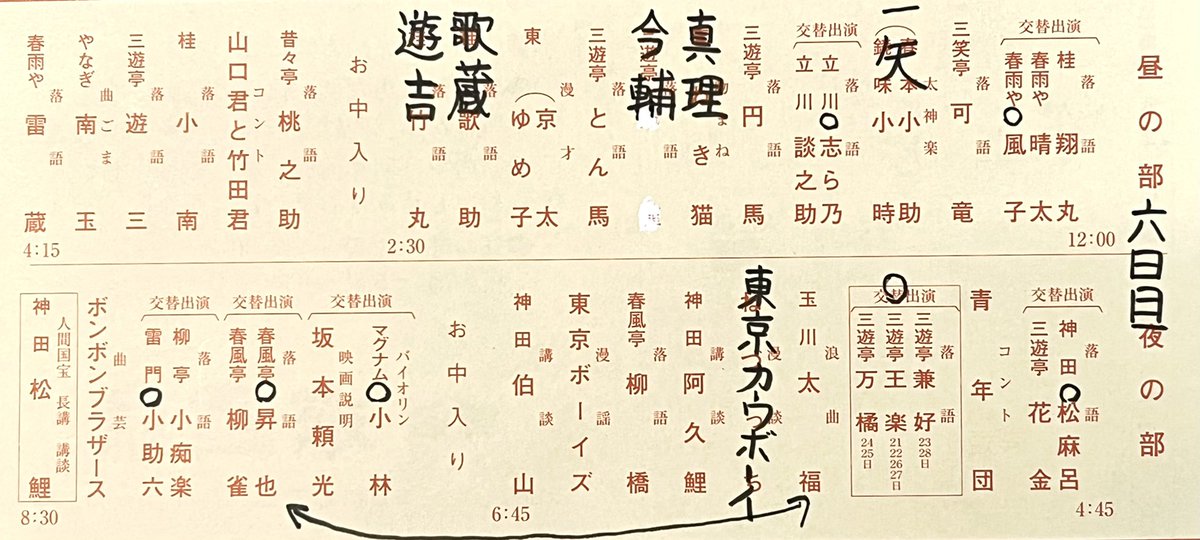 昼の部
六日目
夜の部
12:00
交替出演
落語
桂 翔丸
春雨や 晴太
春雨や ○風子
落語
三笑亭 可竜
太神楽
一矢
小助
鏡味小時
交替出演
落語
立川○志ら乃
立川 談之助
落語
三遊亭 円馬
真理
き猫
今輔
落語
三遊亭 とん馬
漫才
東
京太
ゆめ子
歌蔵
歌助
遊吉
竹丸
お中入り
2:30
落語
昔々亭 桃之助
コント
山口君と竹田君
落語
桂 小南
落語
三遊亭 遊三
曲ごま
やなぎ 南玉
落語
春雨や 雷蔵
4:15
4:45
交替出演
落語
神田○松麻呂
三遊亭 花金
コント
青年団
○
交替出演
落語
三遊亭 兼好 23・28日
三遊亭 王楽 21・22・26・27日
三遊亭 万橘 24・25日
浪曲
玉川太福
東京カウボーイ
講談
神田 阿久鯉
落語
春風亭 柳橋
漫謡
東京ボーイズ
講談
神田 伯山
お中入り
6:45
交替出演
バイオリン
マグナム○小林
映画説明
坂本頼光
交替出演
落語
春風亭○昇也
春風亭 柳雀
交替出演
落語
柳亭 小痴楽
雷門○小助六
曲芸
ボンボンブラザース
人間国宝 長講 講談
神田 松鯉
8:30